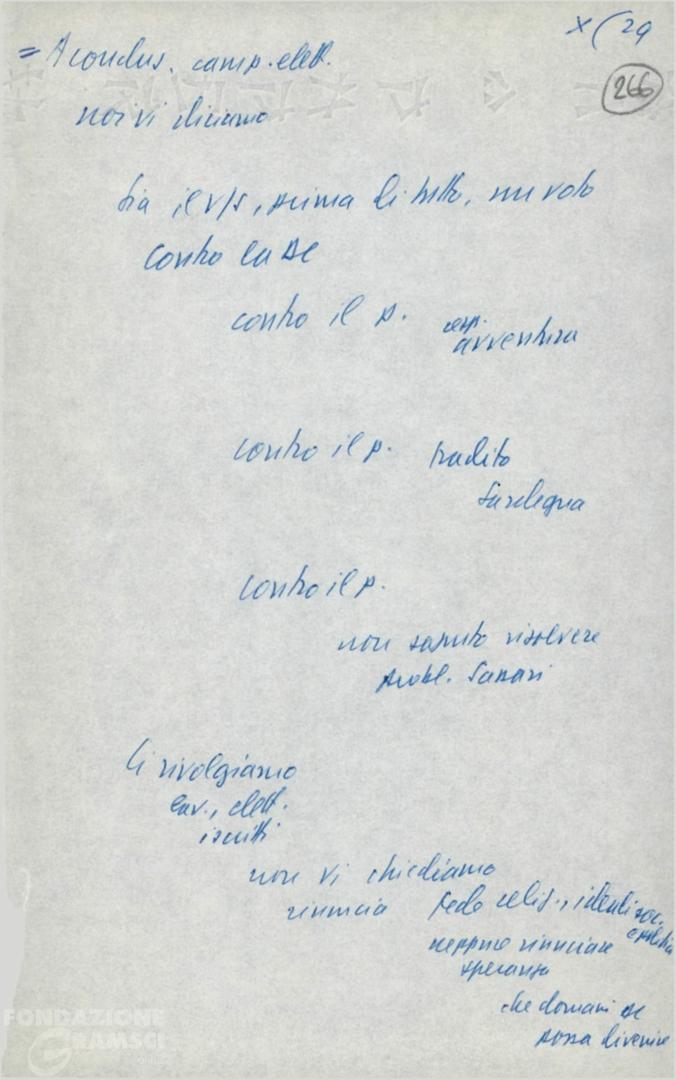 X (29
266
= A conclus. camp. elett.
noi vi diciamo
sia il v/s, prima di tutto, un voto
contro la DC
contro il p.
avventura
contro il p. tradito
Sardegna
contro il p.
non saputo risolvere
probl. Sassari
Ci rivolgiamo
lav., elett.
iscritti
non vi chiediamo
rinuncia fede relig., ideali soc.
e politici
neppure rinunciare
speranza
che domani DC
possa divenire
FONDAZIONE
GRAMSCI